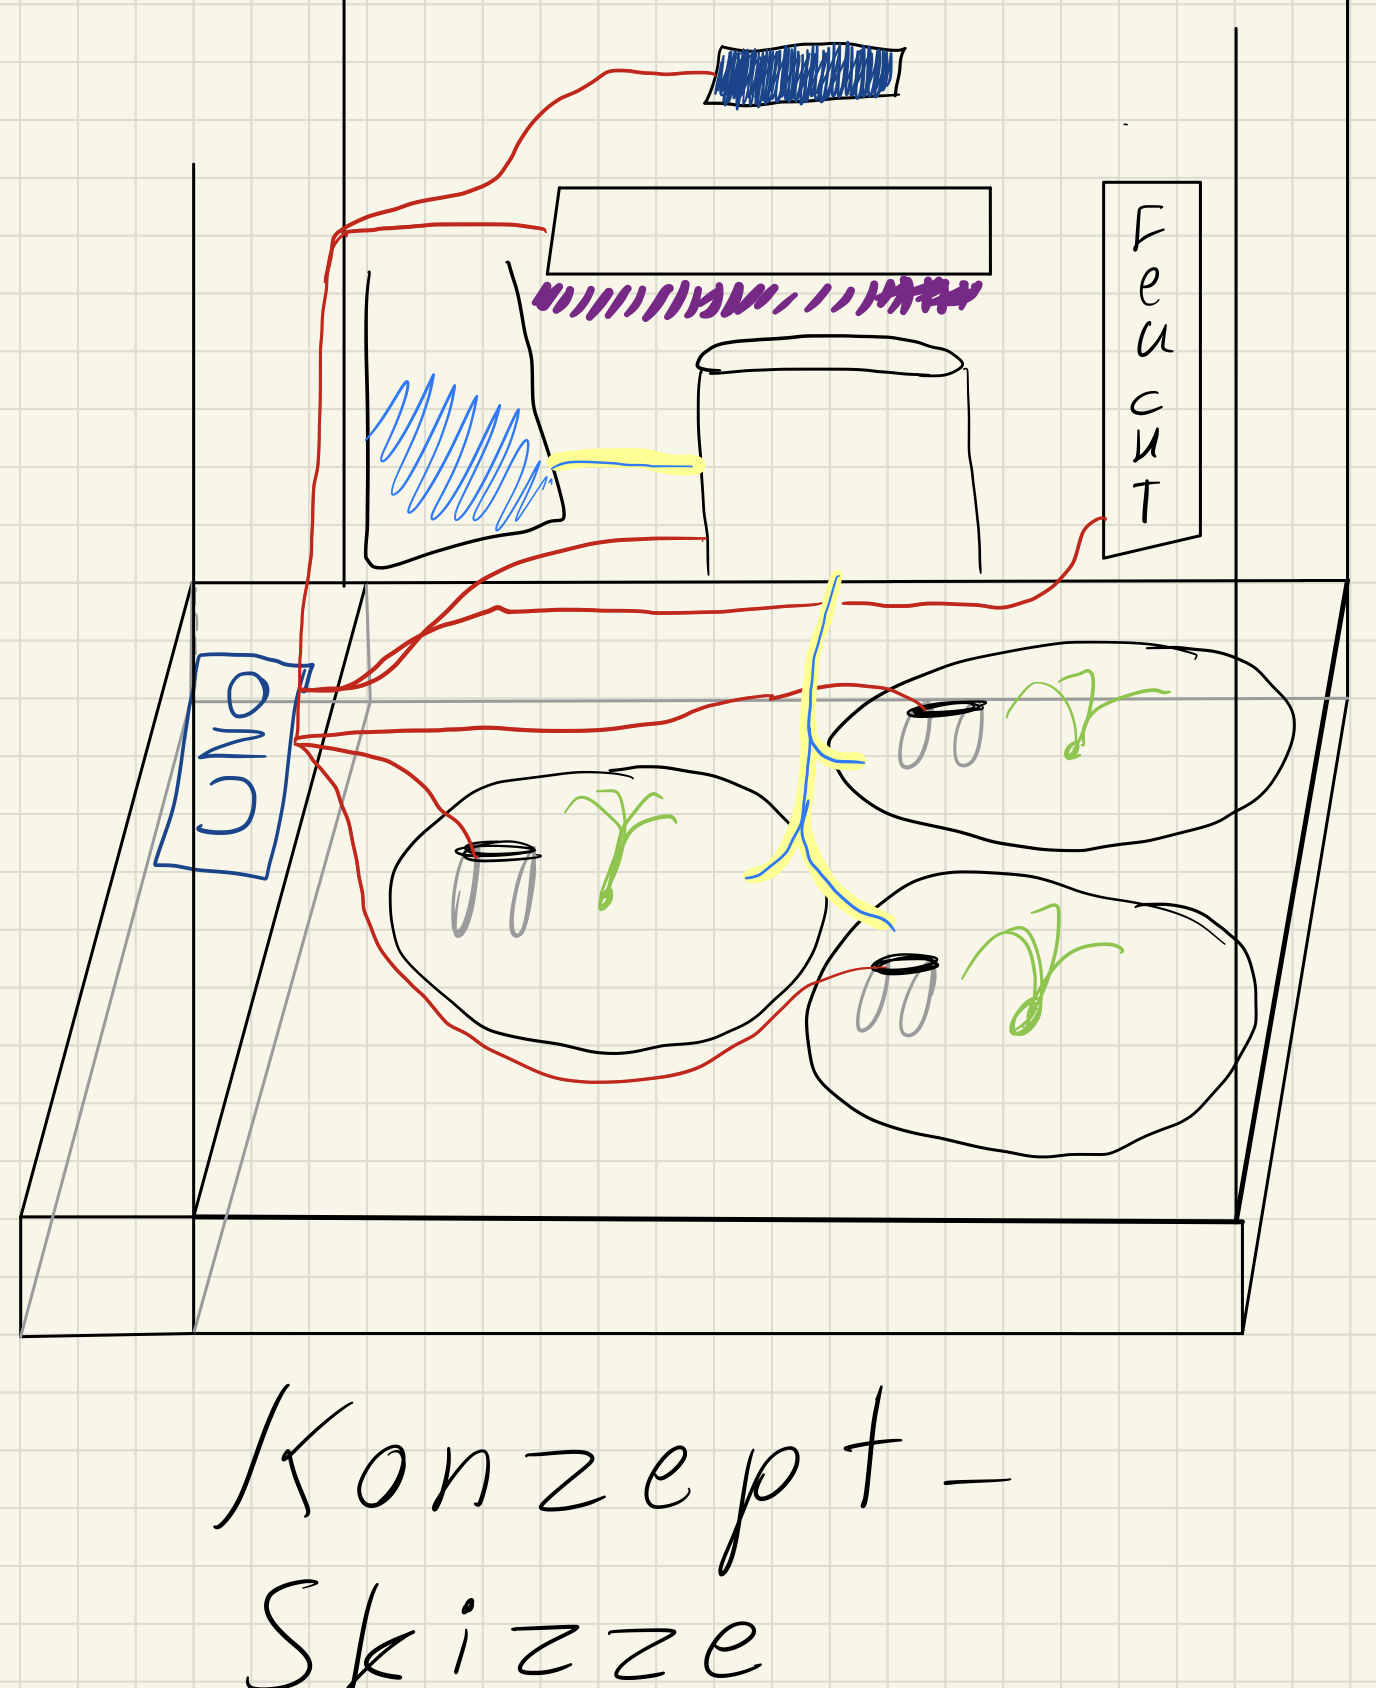 FeuchT
UNO
Konzept-
Skizze